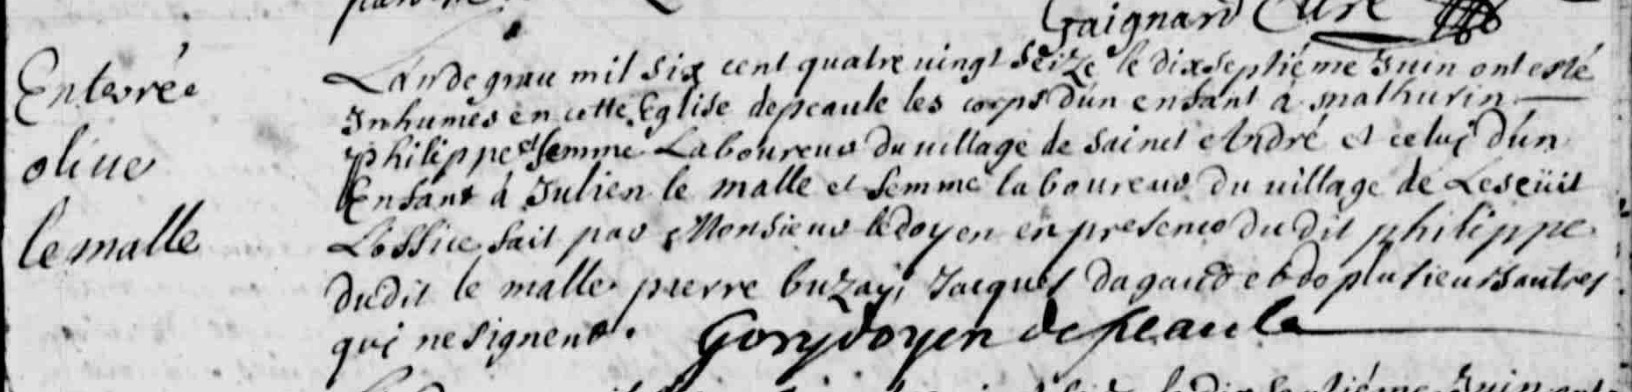 Gaignard Curé
Enterré
olive
le malle
L'an de grace mil six cent quatre vingt seize le dixseptiéme Juin ont esté
Inhumés en cette Eglise de peaule les corps d'un enfant à mathurin
philippe et femme Laboureurs du village de Sainct André et celuy d'un
Enfant à Julien le malle et femme laboureurs du village de
L'office fait par Monsieur le doyen en presence du dit philippe
dudit le malle pierre buzay, Jacques dagaud et de plusieurs autres
qui ne signent. Gory doyen de peaule